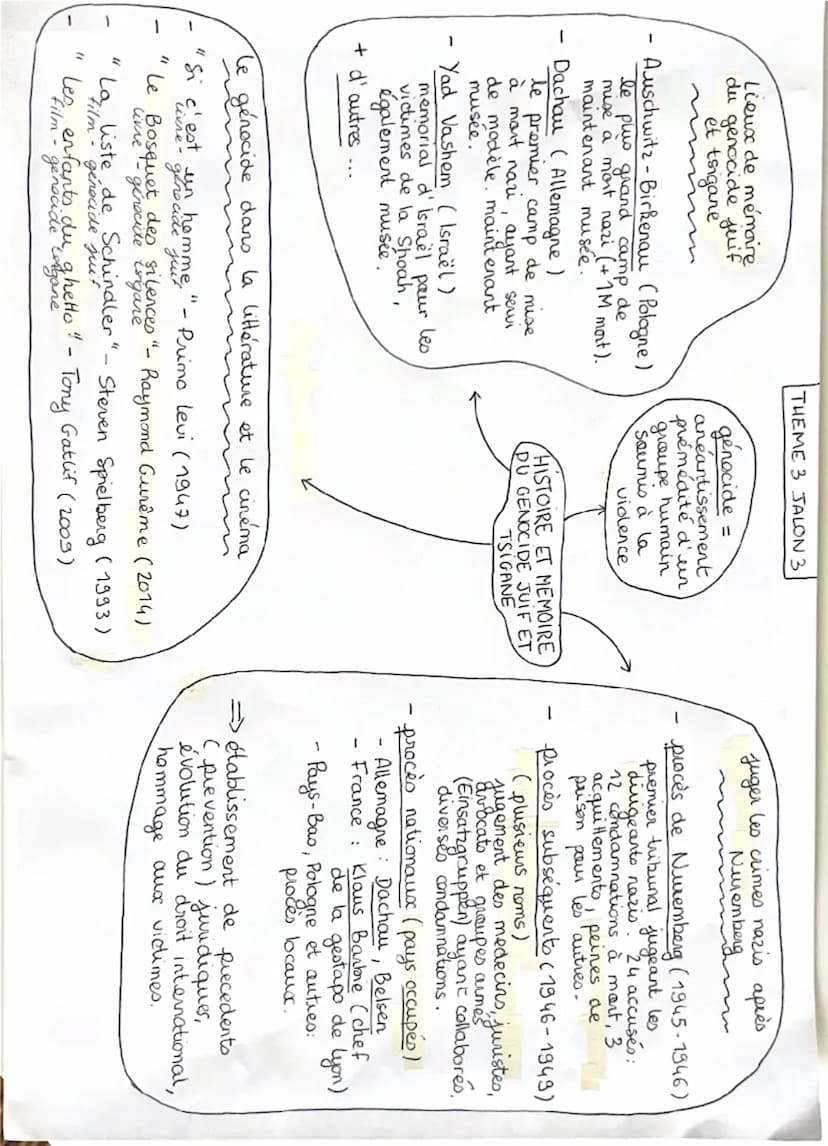 THEME 3 JALON 3
HISTOIRE ET MEMOIRE
DU GENOCIDE JUIF ET
TSIGANE
génocide =
anéantissement
prémédité d'un
groupe humain
soumis à la
violence
Lieux de mémoire
du génocide juif
et tsigane
- Auschwitz-Birkenau (Pologne)
le plus grand camp de
mise à mort nazi (+1M mort).
maintenant musée.
- Dachau (Allemagne)
le premier camp de mise
à mort nazi, ayant servi
de modèle. maintenant
musée.
- Yad Vashem (Israël)
mémorial d'Israël pour les
victimes de la Shoah,
également musée.
+ d'autres ...
Juger les crimes nazis après
Nuremberg
- procès de Nuremberg (1945-1946)
premier tribunal jugeant les
dirigeants nazis. 24 accusés:
12 condamnations à mort, 3
acquittements, peines de
prison pour les autres.
- procès subséquents (1946-1949)
(plusieurs noms)
jugement des médecins, juristes,
avocats et groupes armés
(Einsatzgruppen) ayant collaborés.
diverses condamnations.
- procès nationaux (pays occupés)
- Allemagne : Dachau, Belsen
- France : Klaus Barbie (chef
de la gestapo de Lyon)
- Pays-Bas, Pologne et autres:
procès locaux.
⇒ établissement de précédents
(prévention) juridiques,
évolution du droit international,
hommage aux victimes.
Le génocide dans la littérature et le cinéma
- "Si c'est un homme" - Primo Levi (1947)
livre - génocide juif
- "Le Bosquet des silences" - Raymond Gurême (2014)
livre - génocide tsigane
- "La liste de Schindler" - Steven Spielberg (1993)
film - génocide juif
- "Les enfants du ghetto" - Tony Gatlif (2009)
film - génocide tsigane